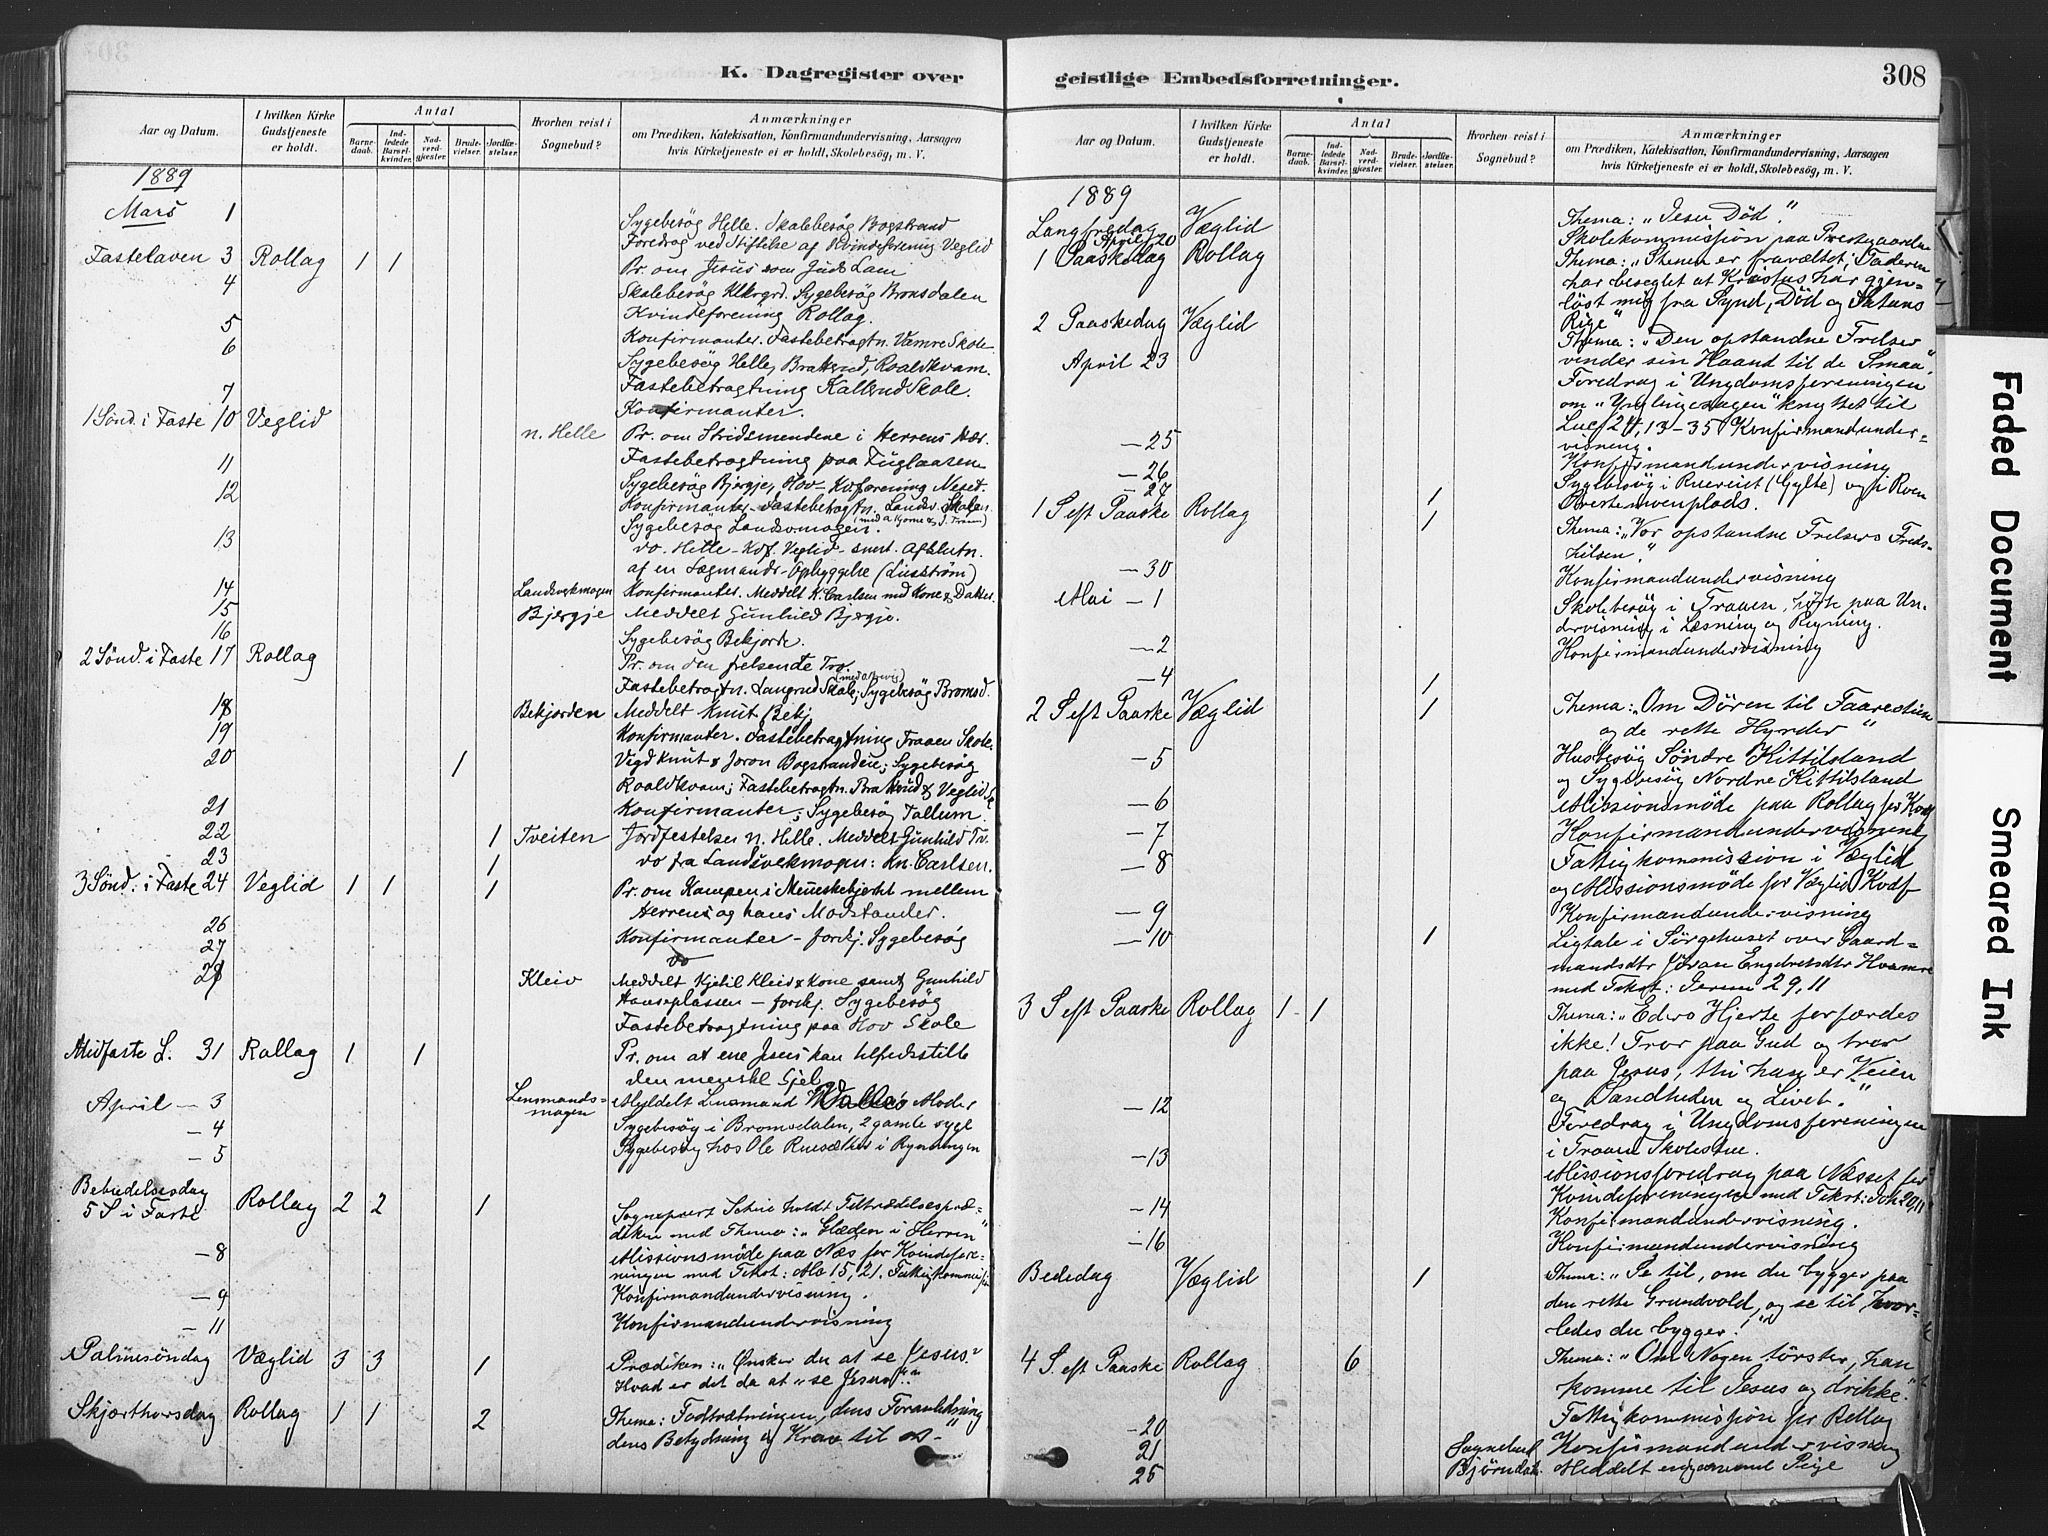 K. Dagregister over
Aar og Datum.
I hvilken Kirke
Gudstjeneste
er holdt.
Antal
Barne-
daab.
Ind-
ledede
Barsel-
kvinder.
Nad-
verd-
gjester.
Brude-
vielser.
Jordfæ-
stelser.
Hvorhen reist i
Sognebud?
Anmærkninger
om Prædiken, Katekisation, Konfirmandundervisning, Aarsagen
hvis Kirketjeneste ei er holdt, Skolebesøg, m. V.
1889
Mars 1
Sygebesög Helle. Skolebesög Bogstrand
Foredrag ved Stiftelse af Kvindeforening Veglid
Fastelaven 3 Rollag 1 1 Pr. om Jesus som Guds Lam
4 Skolebesög Klkrgrd. Sygebesög Bromsdalen
Kvindeforening Rollag.
5 Konfirmanter. Fastebetragtn. Vamre Skole
6 Sygebesög Helle, Bratterud, Roaldkvam.
Fastebetragtning Kallerud Skole.
7 Konfirmanter.
1 Sönd. i Faste 10 Veglid n. Helle Pr. om Stridsmendene i Herrens Hær.
11 Fastebetragtning paa Fuglaasen
12 Sygebesög Bjergje, Hov – Kvforening Neset.
Konfirmanter – Fastebetragtn. Landsv. Skolen.
Sygebesög Landsvmogen.
13 do. Helle – Kdf. Veglid – samt. Afslutn.
af en Lægmands-Opbyggelse
14 Landsvekmogen Konfirmanter. Meddelt K. Carlsen med Kone & Datter.
15 Bjergje Meddelt Gunhild Bjergje.
16 Sygebesög Bekjorde.
2 Sönd. i Faste 17 Rollag Pr. om den frelsende Tro.
Fastebetragtn. Langrud Skole; Sygebesög Bromsd.
18 Bekjorden Meddelt Knut Bekj.
19 Konfirmanter. Fastebetragtning Traaen Skole.
20 1 Vigd Knut & Joron Bogstrandeie; Sygebesög
Roaldkvam; Fastebetragtn. & Veglid
21 Konfirmanter; Sygebesög Tallum.
22 1 Tveiten Jordfestelser n. Helle. Meddelt Gunhild Tv.
23 1 do fra Landsvekmogen: Kn. Carlsen.
3 Sönd. i Faste 24 Veglid 1 1 1 Pr. om Kampen i Menneskehjertet mellem
Herren og hans Modstander.
26 Konfirmanter – forskj. Sygebesög
27 do
28 Kleiv Meddelt Kjetil Kleiv & Kone samt Gunhild
Haugeplassen – forskj. Sygebesög
Fastebetragtning paa Hov Skole
Midfaste S. 31 Rollag 1 1 Pr. om at ene Jesus kan tilfredsstille
den menskl Sjel
April – 3 Lensmands-
mogen Meddelt Lensmand Moder
– 4 Sygebesög i Bromsdalen, 2 gamle syge
– 5 Sygebesög hos Ole i
Bebudelsesdag
5 S i Faste Rollag 2 2 1 Sogneprest holdt Tiltrædelsespræ-
diken med Thema: „Glæden i Herren"
– 8 Missionsmöde paa Næs for Kvindefore-
ningen med Tekst: 15, 21. Fattigkommission
– 9 Konfirmandundervisning.
– 11 Konfirmandundervisning
Palmesöndag Væglid 3 3 1 Prædiken: „Ønsker du at se Jesus?
Hvad er det da at „se Jesus"?"
Skjærthorsdag Rollag 1 1 2 Thema: Fodtvætningen, dens Foranledning
dens Betydning og Krav til os –"
geistlige Embedsforretninger.
308
Aar og Datum.
I hvilken Kirke
Gudstjeneste
er holdt.
Antal
Barne-
daab.
Ind-
ledede
Barsel-
kvinder.
Nad-
verd-
gjester.
Brude-
vielser.
Jordfæ-
stelser.
Hvorhen reist i
Sognebud?
Anmærkninger
om Prædiken, Katekisation, Konfirmandundervisning, Aarsagen
hvis Kirketjeneste ei er holdt, Skolebesøg, m. V.
1889
Langfredag Væglid Thema: „Jesu Död".
April 20 Skolekommission paa Prestegaarden
1 Paaskedag Rollag Thema: „Stenen er fravæltet; Faderen
har beseglet at Kristus har gjen-
löst mig fra Synd, Död og Satans
Rige"
2 Paaskedag Væglid Thema: „Den opstandne Frelser
vender sin Haand til de Smaa"
April 23 Foredrag i Ungdomsforeningen
om „Ynglingesagen" knyttet til
Luc 24, 13–35 Konfirmandunder-
visning.
– 25 Konfirmandundervisning
– 26 Sygebesög i Rueeiet (Gylte) og i Roen
– 27 1
1 S eft Paaske Rollag 1 Thema: „Vor opstandne Frelsers Freds-
hilsen"
– 30 Konfirmandundervisning
Mai – 1 Skolebesög i Traaen, hörte paa Un-
dervisning i Læsning og Regning.
– 2 Konfirmandundervisning
– 4 1
2 S eft Paaske Væglid 1 Thema: „Om Dören til Faarestien
og de rette Hyrder"
– 5 Husbesög Söndre Kittilsland
og Sygebesög Nordre Kittilsland
– 6 Missionsmöde paa Rollag for Kvdf
– 7 Konfirmandundervisning
– 8 Fattigkommission i Væglid
og Missionsmöde for Væglid Kvdf
– 9 Konfirmandundervisning
– 10 1 Ligtale i Sörgehuset over Gaard-
mandsdtr Jöran Engebretsdtr Hvamre
med Tekst: Jerem 29, 11
3 S eft Paaske Rollag 1 – 1 Thema: „Eders Hjerte forfærdes
ikke! Tror paa Gud og tror
paa Jesus, thi han er Veien
og Sandheden og Livet."
– 12 Foredrag i Ungdomsforeningen
i Traaen Skolestue.
– 13 Missionsforedrag paa Næsset for
Kvindeforeningen med Tekst: Joh 20, 11
– 14 Konfirmandundervisning.
– 16 Konfirmandundervisning
Bededag Væglid 1 Thema: „Se til, om du bygger paa
den rette Grundvold, og se til, hvor-
ledes du bygger!"
4 S. eft Paaske Rollag 6 Thema: „Om Nogen törster, han
komme til Jesus og drikke."
– 20 Fattigkommission for Rollag
21 Sognebud Konfirmandundervisning
25 Björndal. Meddelt en gammel Pige
Faded Document
Smeared Ink